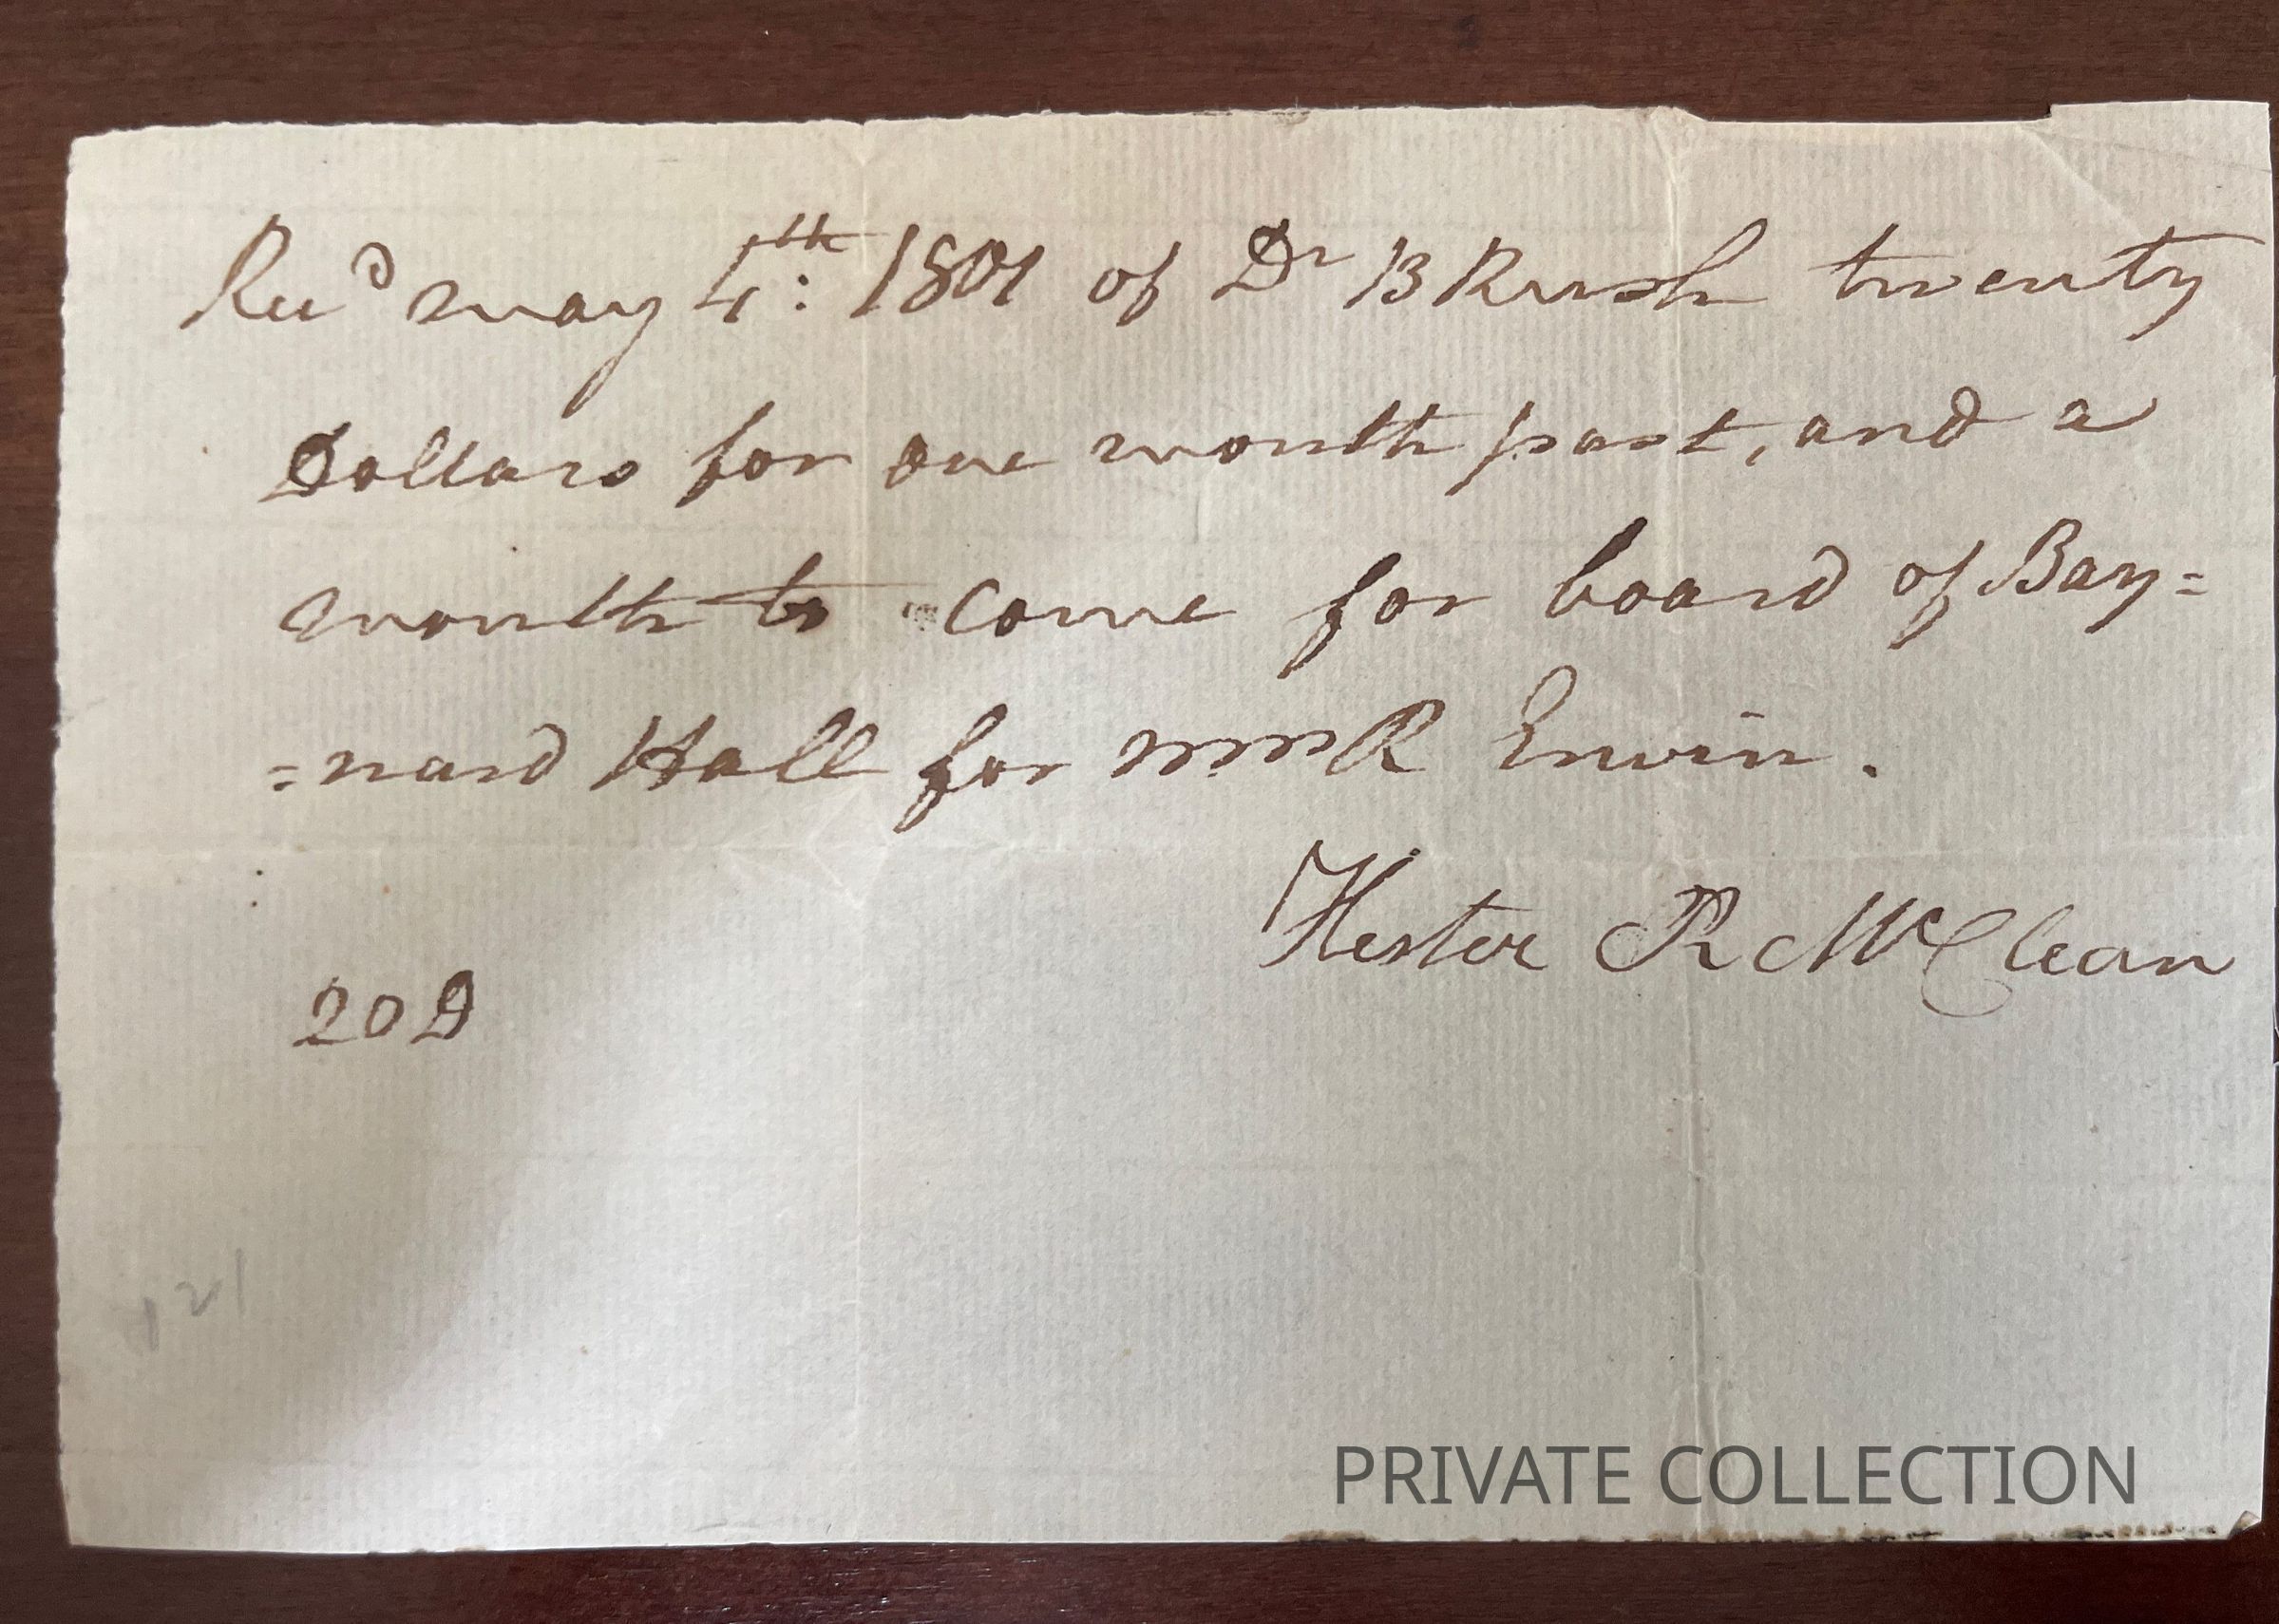 Recd may 4th: 1801 of Dr B Rush twenty
Dollars for one month past, and a
month to come for board of Bay=
=nard Hall for Erwin.
Hester R McClean
20 D
121
PRIVATE COLLECTION